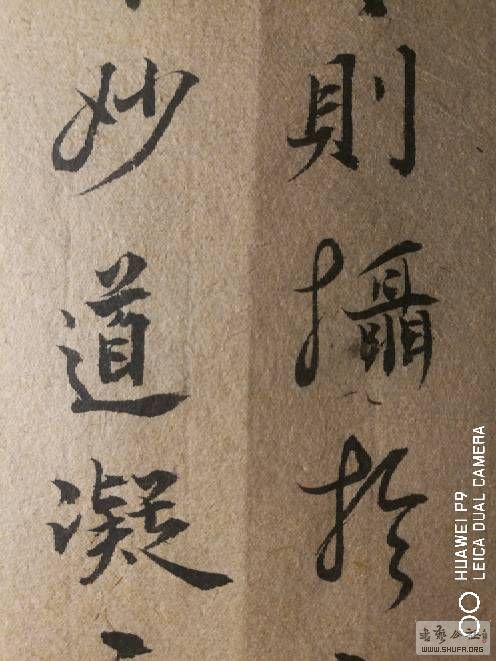 則攝於
妙道凝
HUAWEI P9
LEICA DUAL CAMERA
WWW.SHUFA.ORG